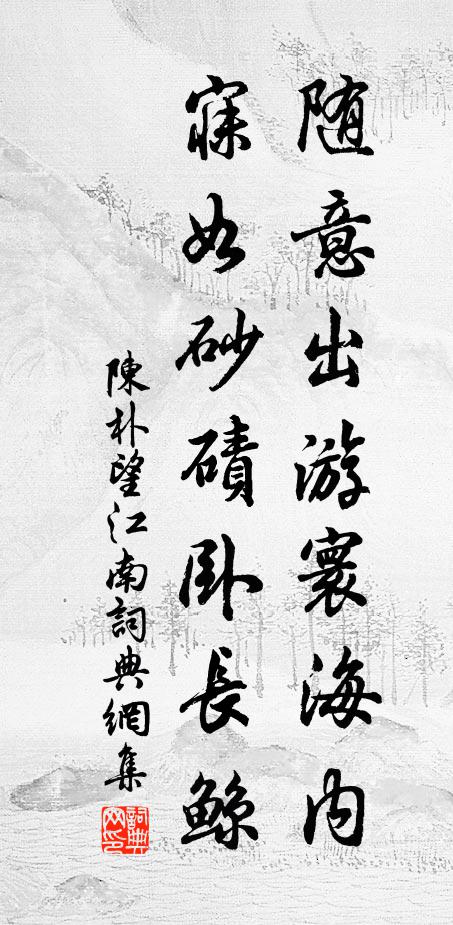 随意出游寰海内
寐如砂磧卧長鯨
陳朴望江南詞典網集
詞典网印